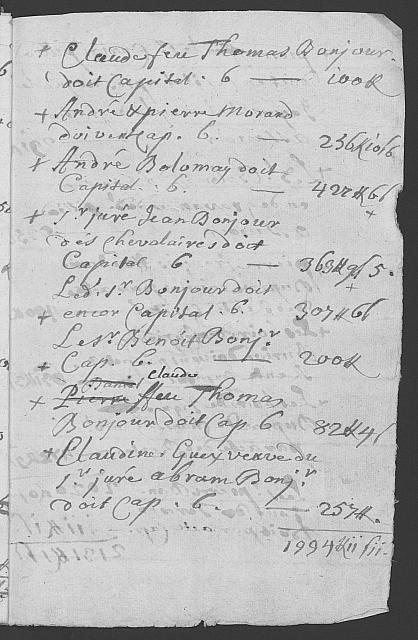 + Claude feu Thomas Bonjour
doit Capital : 6 — 100 ℔
+ André & pierre Morand
doivent Cap. 6. — 236 ℔ 10 ß 6
+ André Bolomay doit
Capital : 6. — 427 ℔ 6 ß
+ Sr. juré Jean Bonjour
des Chevalaires doit
Capital 6 — 363 ℔ 9 ß 5.
Led. Sr. Bonjour doit
+ encor Capital : 6. 307 ℔ 6 ß
Le Sr. Benoit Bonjr.
+ Cap. 6. — 200 ℔
Daniel Claude
+ Pierre ffeu Thomas
Bonjour doit Cap 6 82 ℔ 4 ß
+ Claudine Guex veuve du
Sr. juré abram Bonjr.
doit Cap : 6. — 257 ℔.
1994 ℔